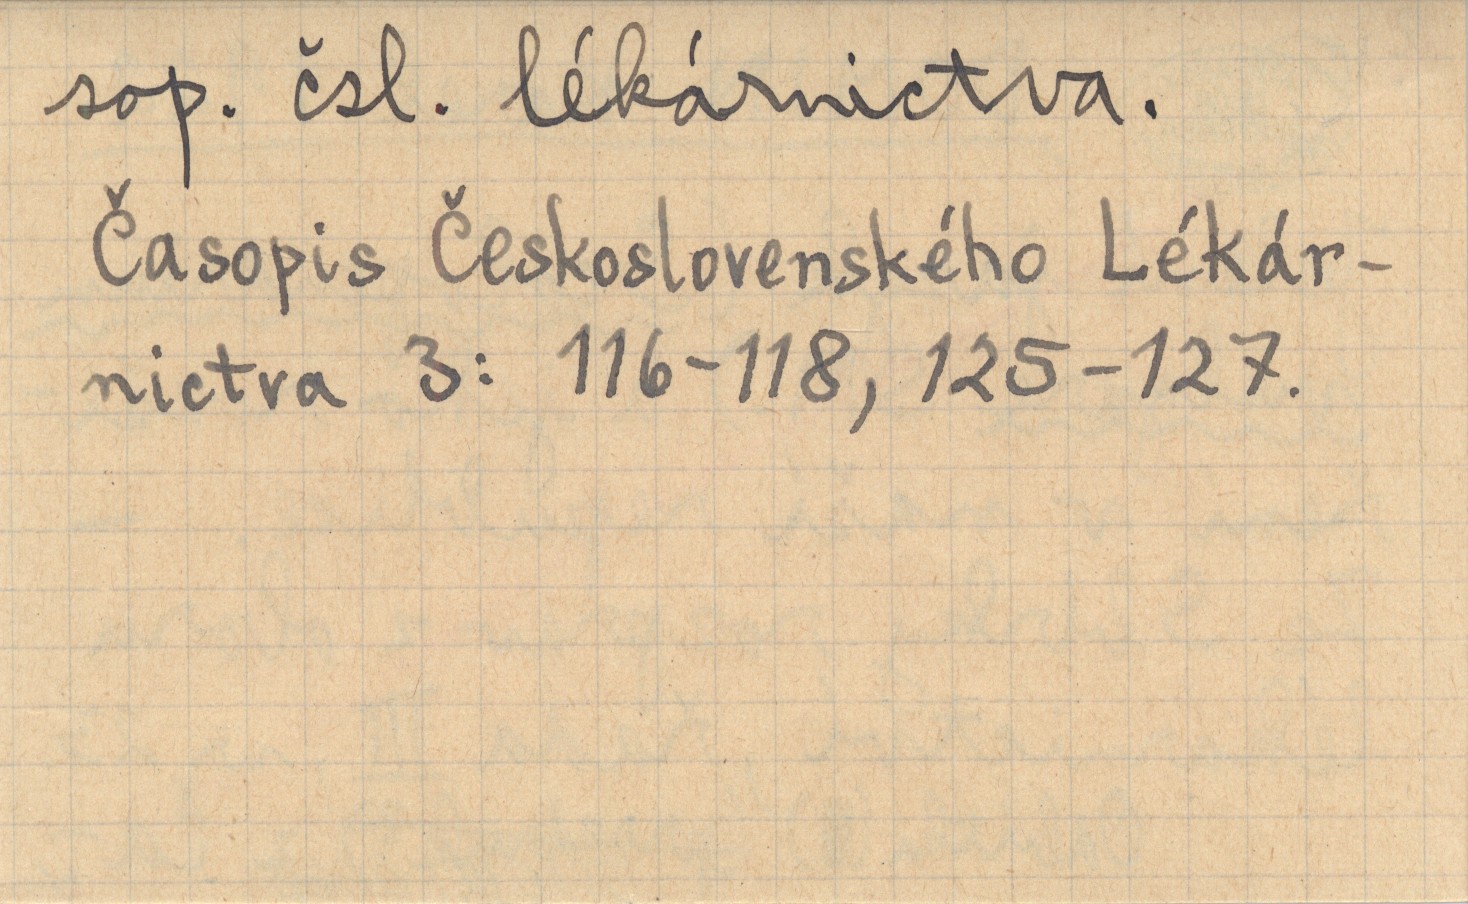 sop. čsl. lékárnictva.
Časopis Československého Lékár-
nictva 3: 116-118, 125-127.